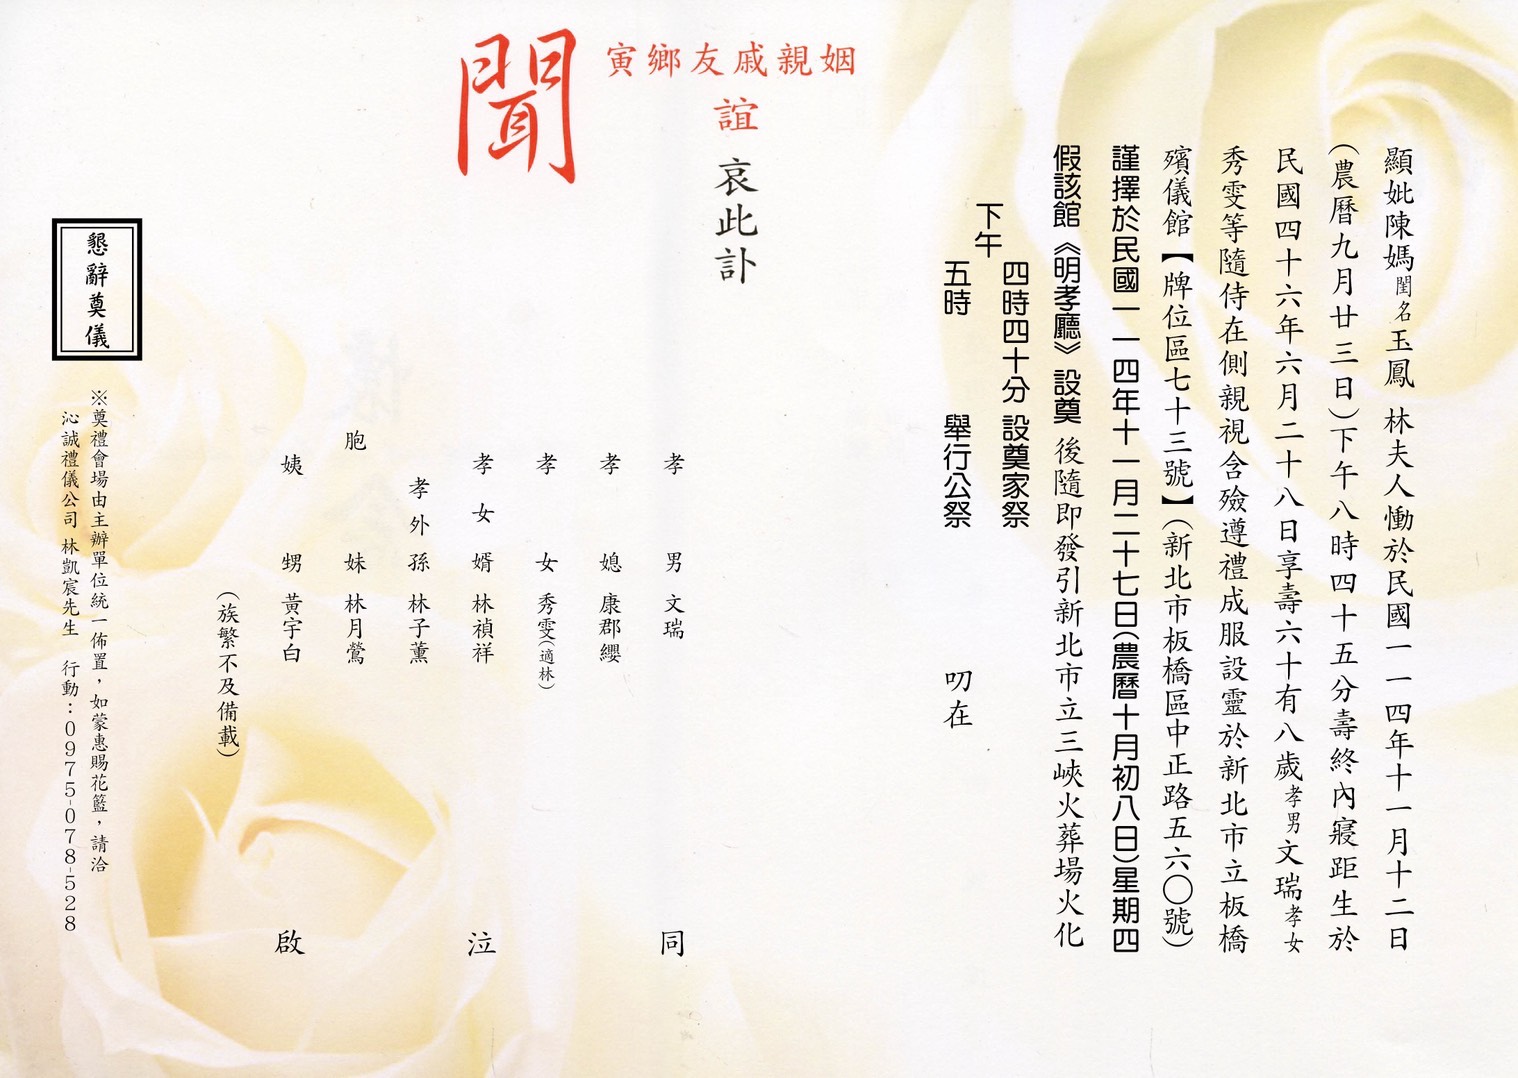 顯妣陳媽閨名玉鳳 林夫人慟於民國一一四年十一月十二日
(農曆九月廿三日)下午八時四十五分壽終內寢距生於
民國四十六年六月二十八日享壽六十有八歲孝男文瑞孝女
秀雯等隨侍在側親視含殮遵禮成服設靈於新北市立板橋
殯儀館【牌位區七十三號】(新北市板橋區中正路五六〇號)
謹擇於民國一一四年十一月二十七日(農曆十月初八日)星期四
假該館《明孝廳》設奠 後隨即發引新北市立三峽火葬場火化
下午
四時四十分 設奠家祭
五時 舉行公祭
叨在
姻親戚友鄉寅
誼 哀此訃
聞
孝男 文瑞
孝媳 康郡纓
孝女 秀雯(適林)
孝女婿 林禎祥
孝外孫 林子薰
胞妹 林月鶯
姨甥 黃宇白
(族繁不及備載)
同
泣
啟
懇辭奠儀
※奠禮會場由主辦單位統一佈置,如蒙惠賜花籃,請洽
沁誠禮儀公司 林凱宸先生 行動:0975-078-528